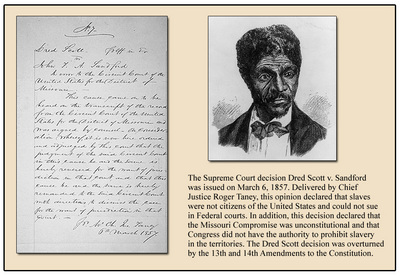 Dred Scott Plff in Er
vs
John F. A. Sandford
In error to the Circuit Court of the
United States for the District of
Missouri
This cause came on to be
heard on the transcript of the record
from the Circuit Court of the United
States for the District of Missouri and
was argued by counsel
and adjudged by this court that the
judgment of the said Circuit Court
in this cause be
reversed for the want of juris
diction in that court and that this
cause be and the same is hereby
remanded to the said Circuit Court
with directions to dismiss the case
for the want of jurisdiction in that
Court
Mr Ch Ju Taney
6th March 1857
The Supreme Court decision Dred Scott v. Sandford
was issued on March 6, 1857. Delivered by Chief
Justice Roger Taney, this opinion declared that slaves
were not citizens of the United States and could not sue
in Federal courts. In addition, this decision declared that
the Missouri Compromise was unconstitutional and that
Congress did not have the authority to prohibit slavery
in the territories. The Dred Scott decision was overturned
by the 13th and 14th Amendments to the Constitution.